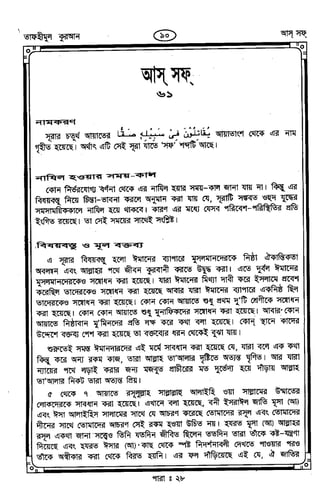 তাফহীমুল কুরআন
৯০
আস্ সফ্
আস্ সফ্
৬১
নামকরণ
সূরার চতুর্থ আয়াতের يُقَاتِلُونَ فِي سَبِيلِهِ صَفًّا আয়াতাংশ থেকে এর নাম
গৃহীত হয়েছে। অর্থাৎ এটি সেই সূরা যাতে 'সফ' শব্দটি আছে।
নাযিল হওয়ার সময়-কাল
কোন নির্ভরযোগ্য বর্ণনা থেকে এর নাযিল হয়ার সময়-কাল জানা যায় না। কিন্তু এর
বিষয়বস্তু নিয়ে চিন্তা-ভাবনা করলে অনুমান করা যায় যে, সূরাটি সম্ভবত ওহুদ যুদ্ধের
সমসাময়িককালে নাযিল হয়ে থাকবে। কারণ এর মধ্যে যেসব পরিবেশ-পরিস্থিতির প্রতি
ইংগিত রয়েছে। তা সেই সময়ের সাথেই সংশ্লিষ্ট।
বিষয়বস্তু ও মূল বক্তব্য
এ সূরার বিষয়বস্তু হলো ঈমানের ব্যাপারে মুসলমানদেরকে নিষ্ঠা ঐকান্তিকতা
অবলম্বন এবং আল্লাহর পথে জীবন কুরবানী করতে উদ্বুদ্ধ করা। এতে দুর্বল ঈমানের
মুসলমানদেরকেও সম্বোধন করা হয়েছে। যারা ঈমানের মিথ্যা দাবী করে ইসলামে প্রবেশ
করেছিল তাদেরকেও সম্বোধন করা হয়েছে আবার যারা ঈমানের ব্যাপারে একনিষ্ঠ ছিল
তাদেরকেও সম্বোধন করা হয়েছে। কোন কোন আয়াতে শুধু প্রথম দু'টি শ্রেণীকে সম্বোধন
করা হয়েছে। কোন কোন আয়াতে শুধু মুনাফিকদের সম্বোধন করা হয়েছে। আবার-কোন
আয়াতে নিষ্ঠাবান মু'মিনদের প্রতি লক্ষ করে কথা বলা হয়েছে। কোন্ স্থানে কাদের
উদ্দেশে বক্তব্য পেশ করা হয়েছে তা বক্তব্যের ধরন থেকেই বুঝা যায়।
শুরুতেই সমস্ত ঈমানদারদের এই মর্মে সাবধান করা হয়েছে যে, যারা বলে এক কথা
কিন্তু করে অন্য রকম কাজ, তারা আল্লাহ তা'আলার দৃষ্টিতে অত্যন্ত ঘৃণিত। আর যারা
ন্যায়ের পথে লড়াই করার জন্য মজবুত প্রাচীরের মত দুর্ভেদ্য হয়ে দাঁড়ায় আল্লাহ
তা'আলার নিকট তারা অত্যন্ত প্রিয়।
৫ থেকে ৭ আয়াতে রসূলুল্লাহ সাল্লাল্লাহু আলাইহি ওয়া সাল্লামের উম্মতের
লোকদেরকে সাবধান করা হয়েছে। এখানে বলা হয়েছে, বনী ইসরাঈল জাতি মূসা (আ)
এবং ঈসা আলাইহিস সালামের সাথে যে আচরণ করেছে তোমাদের রসূল এবং তোমাদের
দীনের সাথে তোমাদের আচরণ সেই রকম হওয়া উচিত নয়। হযরত মূসা (আ) আল্লাহর
রসূল একথা জানা সত্ত্বেও তিনি যতদিন জীবিত ছিলেন ততদিন তারা তাঁকে কষ্ট-যন্ত্রণা
দিয়েছে এবং হযরত ঈসার (আ)-কাছ থেকে স্পষ্ট নিদর্শনাবলী দেখতে পাওয়ার পরও
তাঁকে অস্বীকার করা থেকে বিরত হয়নি। এর ফল দাঁড়িয়েছে এই যে, ঐ জাতির
পারা ঃ ২৮